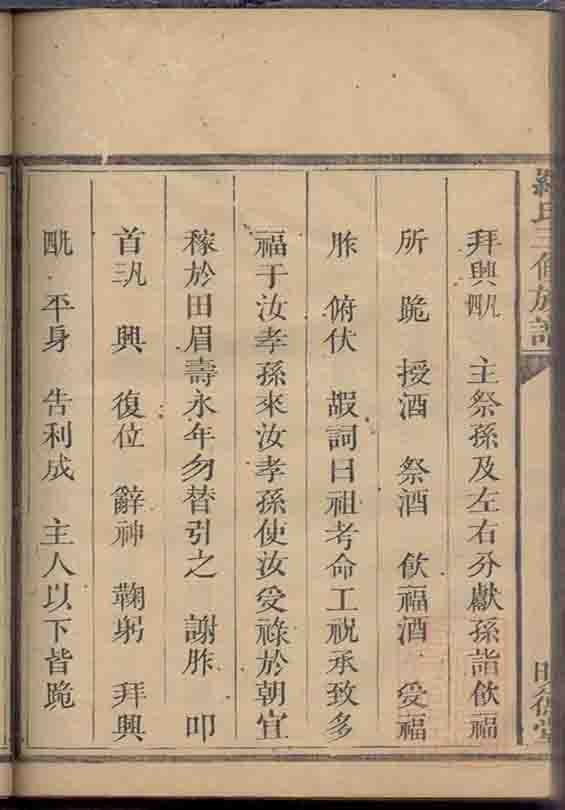 拜興凡四　主祭孫及左右分獻孫詣飲福
所　跪　授酒　祭酒　飲福酒　受福
胙　俯伏　嘏詞曰祖考命工祝承致多
福于汝孝孫來汝孝孫使汝受祿於朝宜
稼於田眉壽永年勿替引之　謝胙　叩
首凡三　興　復位　辭神　鞠躬　拜興
凡四　平身　告利成　主人以下皆跪
氏三修族譜